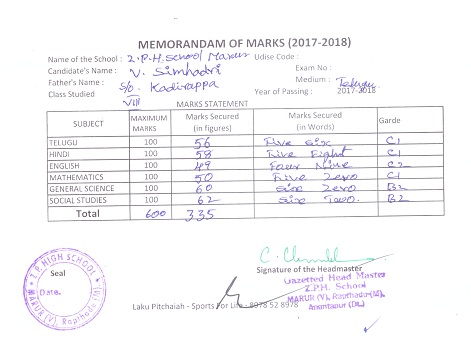 MEMORANDAM OF MARKS (2017-2018)
Name of the School : Z.P.H.School Marur Udise Code :
Candidate's Name : V. Simhadri Exam No :
Father's Name : S/o. Kadirappa Medium : Telugu
Class Studied VIII Year of Passing : 2017-2018
MARKS STATEMENT
SUBJECT MAXIMUM MARKS Marks Secured (in figures) Marks Secured (in Words) Garde
TELUGU 100 56 Five Six C1
HINDI 100 58 Five Eight C1
ENGLISH 100 49 Four Nine C2
MATHEMATICS 100 50 Five Zero C1
GENERAL SCIENCE 100 60 Six Zero B2
SOCIAL STUDIES 100 62 Six Two. B2
Total 600 335
Signature of the Headmaster
Gazetted Head Master
Z.P.H. School
MARUR (V), Rapthadu(M),
Anantapur (Dt.)
Z.P. HIGH SCHOOL
Seal
Date.
MARUR (V), Rapthadu (M)
Laku Pitchaiah - Sports For Life - 8978 52 8978